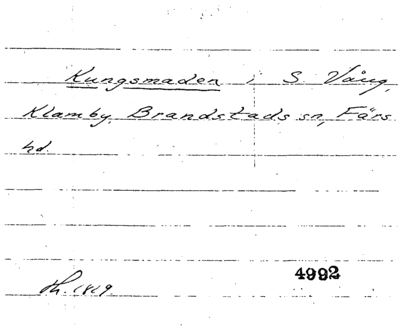 Kungsmaden i S. Vång,
Klamby, Brandstads sn, Färs
hd.
4992
Th. 1819